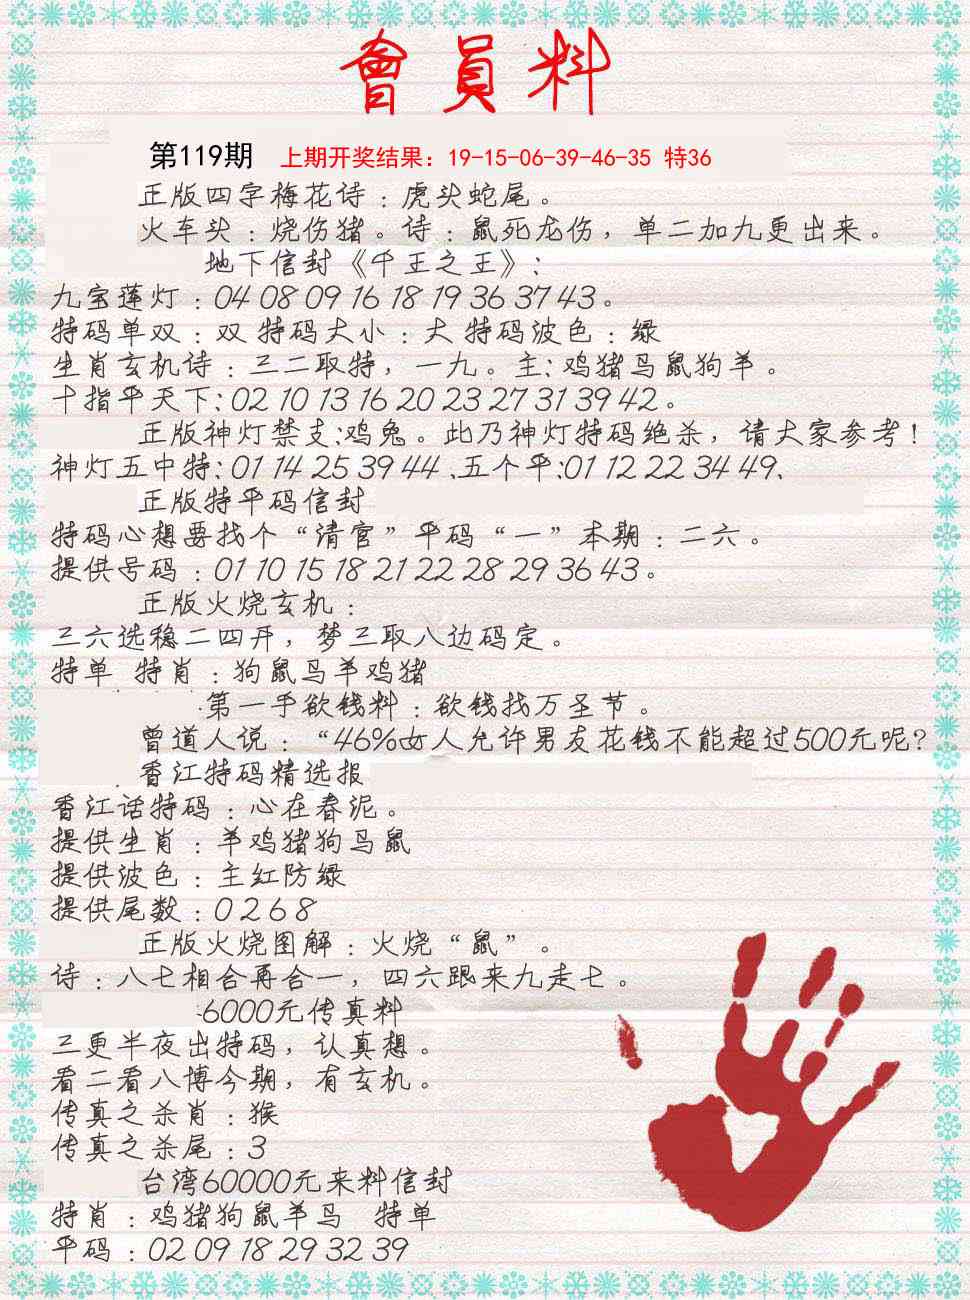 會員料
第119期 上期开奖结果：19-15-06-39-46-35 特36
正版四字梅花诗：虎头蛇尾。
火车头：烧伤猪。诗：鼠死龙伤，单二加九更出来。
地下信封《千王之王》：
九宝莲灯：04 08 09 16 18 19 36 37 43。
特码单双：双 特码大小：大 特码波色：绿
生肖玄机诗：三二取特，一九。主：鸡猪马鼠狗羊。
十指平天下：02 10 13 16 20 23 27 31 39 42。
正版神灯禁支：鸡兔。此乃神灯特码绝杀，请大家参考！
神灯五中特：01 14 25 39 44、五个平：01 12 22 34 49、
正版特平码信封
特码心想要找个“清官”平码“一”本期：二六。
提供号码：01 10 15 18 21 22 28 29 36 43。
正版火烧玄机：
三六选稳二四开，梦三取八边码定。
特单 特肖：狗鼠马羊鸡猪
第一手欲钱料：欲钱找万圣节。
曾道人说：“46%女人允许男友花钱不能超过500元呢？
香江特码精选报
香江话特码：心在春泥。
提供生肖：羊鸡猪狗马鼠
提供波色：主红防绿
提供尾数：0 2 6 8
正版火烧图解：火烧“鼠”。
诗：八七相合再合一，四六跟来九走七。
6000元传真料
三更半夜出特码，认真想。
看二看八博今期，有玄机。
传真之杀肖：猴
传真之杀尾：3
台湾60000元来料信封
特肖：鸡猪狗鼠羊马 特单
平码：02 09 18 29 32 39